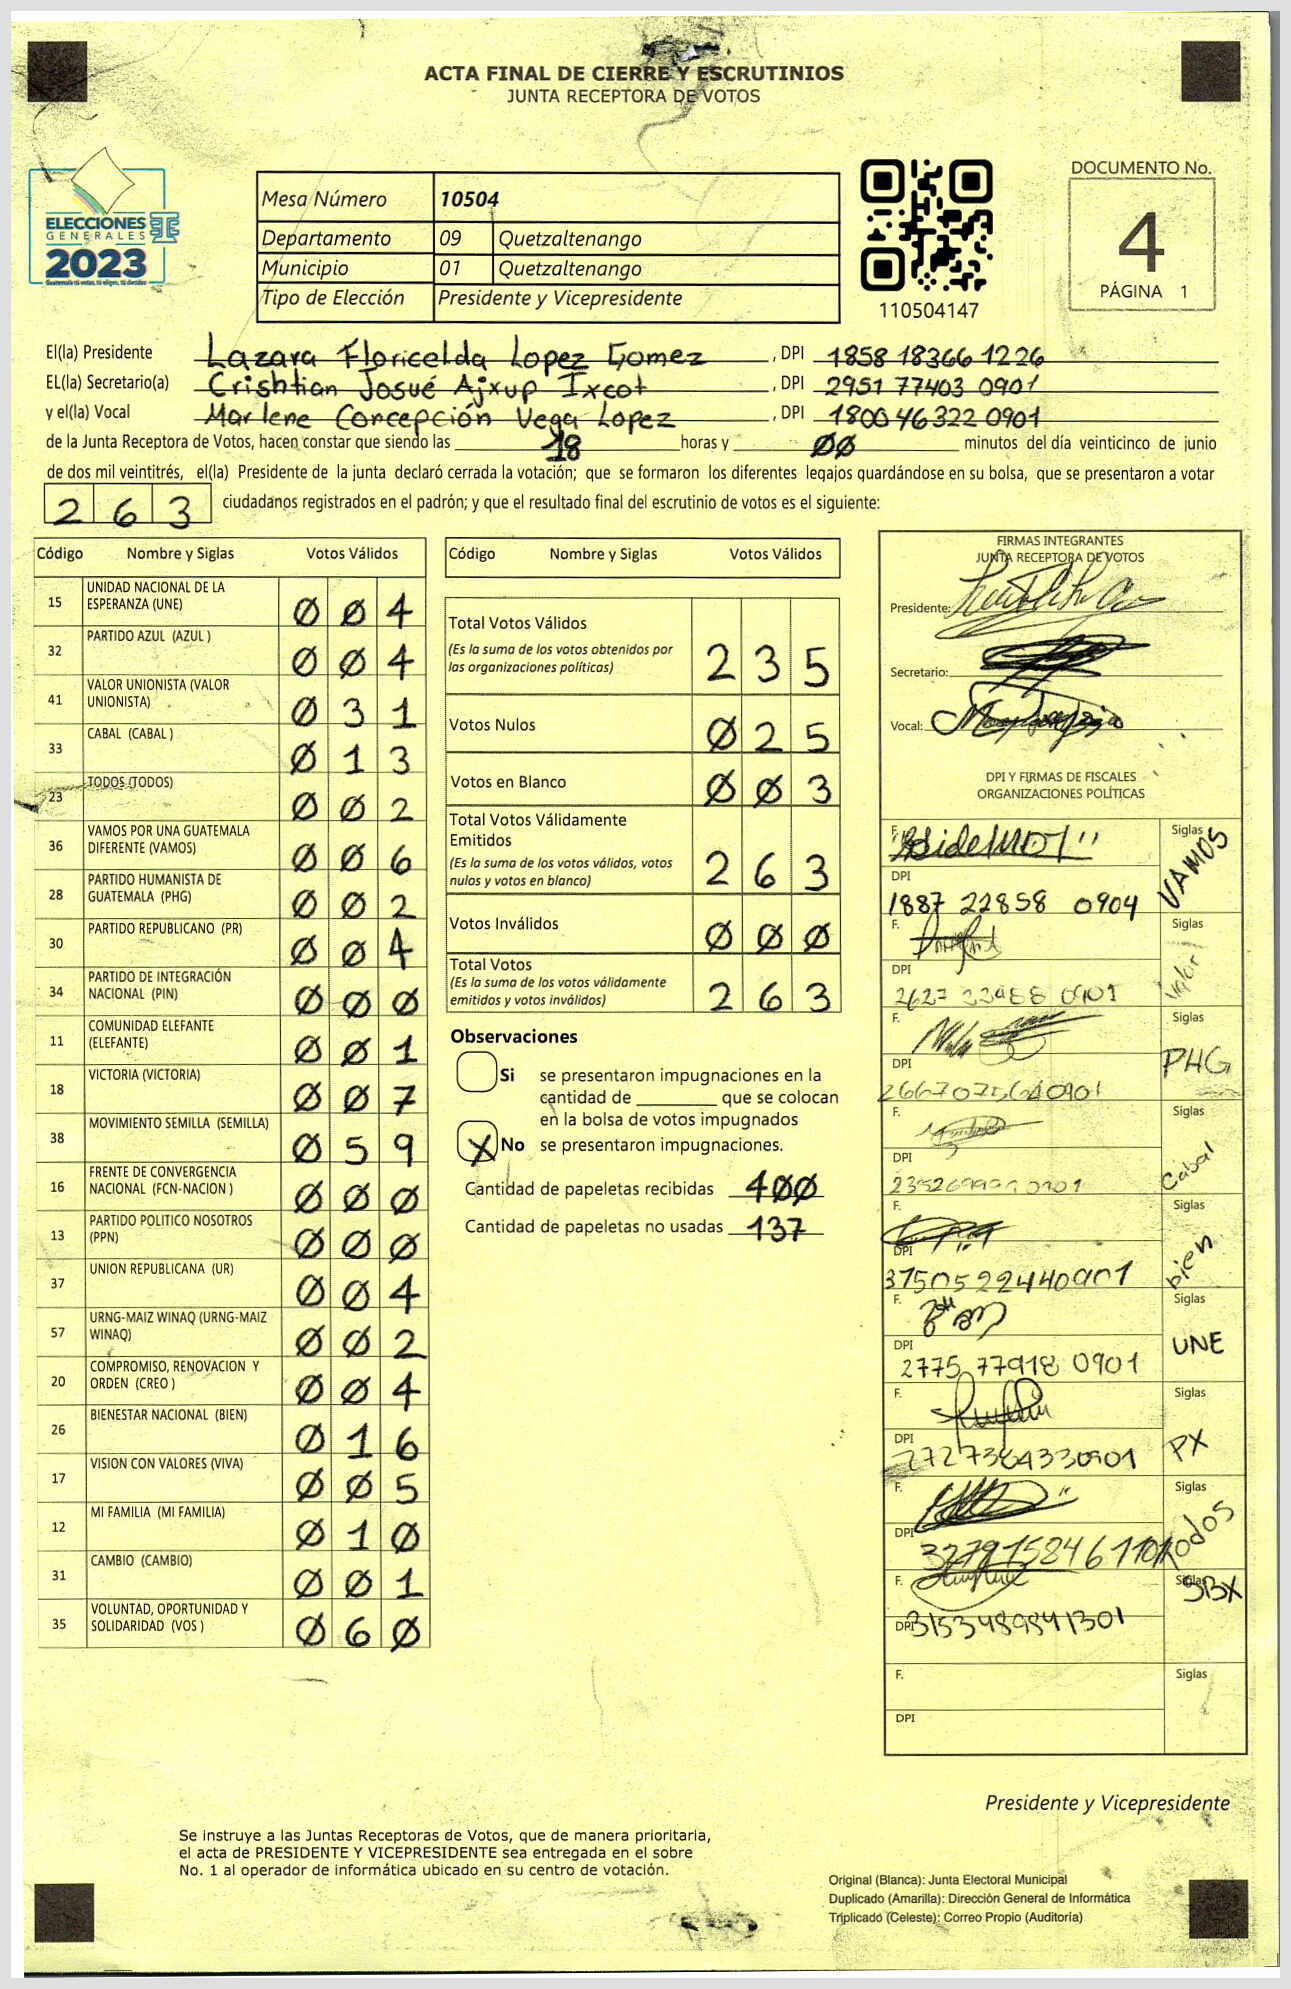 ACTA FINAL DE CIERRE Y ESCRUTINIOS
JUNTA RECEPTORA DE VOTOS
ELECCIONES
GENERALES
2023
Mesa Número 10504
Departamento 09 Quetzaltenango
Municipio 01 Quetzaltenango
Tipo de Elección Presidente y Vicepresidente
110504147
DOCUMENTO No.
4
PÁGINA 1
El(la) Presidente Lazara Floricelda Lopez Gomez, DPI 1858 18366 1226
EL(la) Secretario(a) Crishtian Josué Ajxup Ixcot, DPI 2951 77403 0901
y el(la) Vocal Marlene Concepción Vega Lopez, DPI 1800 46322 0901
de la Junta Receptora de Votos, hacen constar que siendo las 18 horas y 00 minutos del día veinticinco de junio
de dos mil veintitrés, el(la) Presidente de la junta declaró cerrada la votación; que se formaron los diferentes legajos guardándose en su bolsa, que se presentaron a votar
263 ciudadanos registrados en el padrón; y que el resultado final del escrutinio de votos es el siguiente:
Código Nombre y Siglas Votos Válidos
15 UNIDAD NACIONAL DE LA ESPERANZA (UNE) 004
32 PARTIDO AZUL (AZUL ) 004
41 VALOR UNIONISTA (VALOR UNIONISTA) 031
33 CABAL (CABAL ) 013
23 TODOS (TODOS) 002
36 VAMOS POR UNA GUATEMALA DIFERENTE (VAMOS) 006
28 PARTIDO HUMANISTA DE GUATEMALA (PHG) 002
30 PARTIDO REPUBLICANO (PR) 004
34 PARTIDO DE INTEGRACIÓN NACIONAL (PIN) 000
11 COMUNIDAD ELEFANTE (ELEFANTE) 001
18 VICTORIA (VICTORIA) 007
38 MOVIMIENTO SEMILLA (SEMILLA) 059
16 FRENTE DE CONVERGENCIA NACIONAL (FCN-NACION ) 000
13 PARTIDO POLITICO NOSOTROS (PPN) 000
37 UNION REPUBLICANA (UR) 004
57 URNG-MAIZ WINAQ (URNG-MAIZ WINAQ) 002
20 COMPROMISO, RENOVACION Y ORDEN (CREO ) 004
26 BIENESTAR NACIONAL (BIEN) 016
17 VISION CON VALORES (VIVA) 005
12 MI FAMILIA (MI FAMILIA) 010
31 CAMBIO (CAMBIO) 001
35 VOLUNTAD, OPORTUNIDAD Y SOLIDARIDAD (VOS ) 060
Código Nombre y Siglas Votos Válidos
Total Votos Válidos 235
(Es la suma de los votos obtenidos por
las organizaciones políticas)
Votos Nulos 025
Votos en Blanco 003
Total Votos Válidamente
Emitidos 263
(Es la suma de los votos válidos, votos
nulos y votos en blanco)
Votos Inválidos 000
Total Votos 263
(Es la suma de los votos válidamente
emitidos y votos inválidos)
Observaciones
Si se presentaron impugnaciones en la
cantidad de ________ que se colocan
en la bolsa de votos impugnados
X No se presentaron impugnaciones.
Cantidad de papeletas recibidas 400
Cantidad de papeletas no usadas 137
FIRMAS INTEGRANTES
JUNTA RECEPTORA DE VOTOS
Presidente:
Secretario:
Vocal:
DPI Y FIRMAS DE FISCALES
ORGANIZACIONES POLÍTICAS
F. Siglas VAMOS
DPI 1887 22858 0904
F. Siglas Valor
DPI
F. Siglas PHG
DPI
F. Siglas Cabal
DPI
F. Siglas bien
DPI 3750522440901
F. Siglas UNE
DPI 2775 77918 0901
F. Siglas PX
DPI 2727364330901
F. Siglas Todos
DPI
F. Siglas SBX
DPI 3153489841301
F. Siglas
DPI
Presidente y Vicepresidente
Se instruye a las Juntas Receptoras de Votos, que de manera prioritaria,
el acta de PRESIDENTE Y VICEPRESIDENTE sea entregada en el sobre
No. 1 al operador de informática ubicado en su centro de votación.
Original (Blanca): Junta Electoral Municipal
Duplicado (Amarilla): Dirección General de Informática
Triplicado (Celeste): Correo Propio (Auditoría)